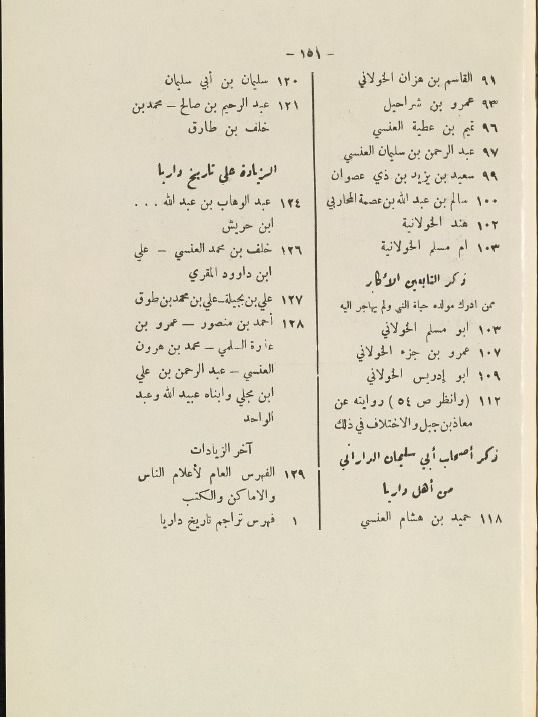 - ١٥١ -
٩١ القاسم بن هزان الخولاني
٩٣ عمرو بن شراحيل
٩٦ تميم بن عطية العنسي
٩٧ عبد الرحمن بن سليمان العنسي
٩٩ سعيد بن يزيد بن ذي عصوان
١٠٠ سالم بن عبد الله بن عصمة المحاربي
١٠٢ هند الخولانية
١٠٣ ام مسلم الخولانية
ذكر التابعين الأكابر
ممن ادرك مولده حياة النبي ولم يهاجر اليه
١٠٣ ابو مسلم الخولاني
١٠٧ عمرو بن جزء الخولاني
١٠٩ ابو إدريس الخولاني
١١٢ (وانظر ص ٥٤) روايته عن
معاذ بن جبل والاختلاف في ذلك
ذكر أصحاب أبي سليمان الداراني
من أهل داريا
١١٨ حميد بن هشام العنسي
١٢٠ سليمان بن أبي سليمان
١٢١ عبد الرحيم بن صالح – محمد بن
خلف بن طارق
الزيادة على تاريخ داريا
١٢٤ عبد الوهاب بن عبد الله ...
ابن حريش
١٢٦ خلف بن محمد العنسي – علي
ابن داوود المقري
١٢٧ علي بن بجيلة – علي بن محمد بن طوق
١٢٨ أحمد بن منصور – عمرو بن
السلمي – محمد بن هرون
العنسي – عبد الرحمن بن علي
ابن بجلي وابناه عبيد الله وعبد
الواحد
آخر الزيادات
١٢٩ الفهرس العام لأعلام الناس
والاماكن والكتب
١ فهرس تراجم تاريخ داريا